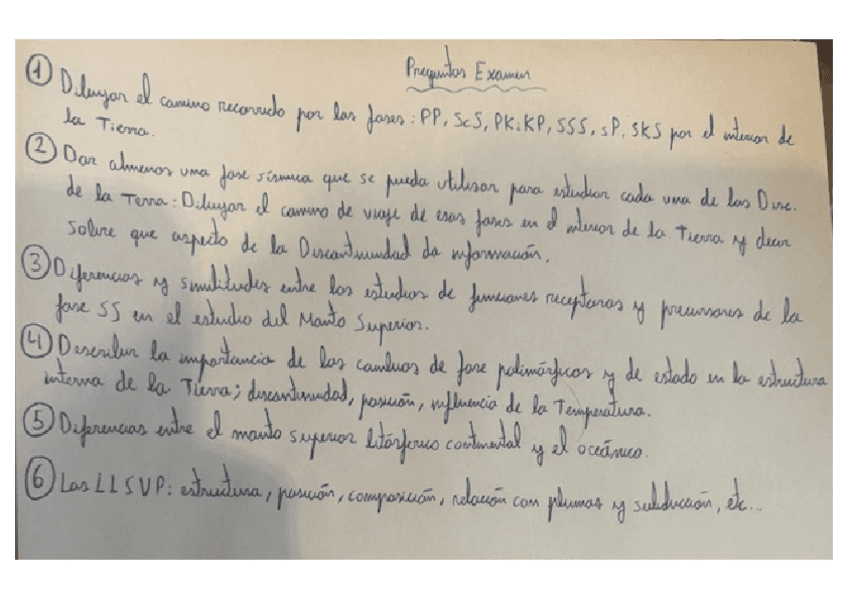 Preguntas Examen
① Dibujar el camino recorrido por las fases: PP, ScS, PKiKP, SSS, sP, SKS por el interior de
la Tierra.
② Dar almenos una fase sísmica que se pueda utilisar para estudiar cada una de las Disc.
de la Terra: Dibujar el camino de viaje de esas fases en el interior de la Tierra y decir
sobre que aspecto de la Discontinuidad da información.
③ Diferencias y similitudes entre los estudios de funciones receptoras y precursores de la
fase SS en el estudio del Manto Superior.
④ Describir la importancia de los cambios de fase polimórficos y de estado en la estructura
interna de la Tierra; discontinuidad, posición, influencia de la Temperatura.
⑤ Diferencias entre el manto superior litósferico continental y el oceánico.
⑥ Las LLSVP: estructura, posición, composición, relación con plumas y subducción, etc...